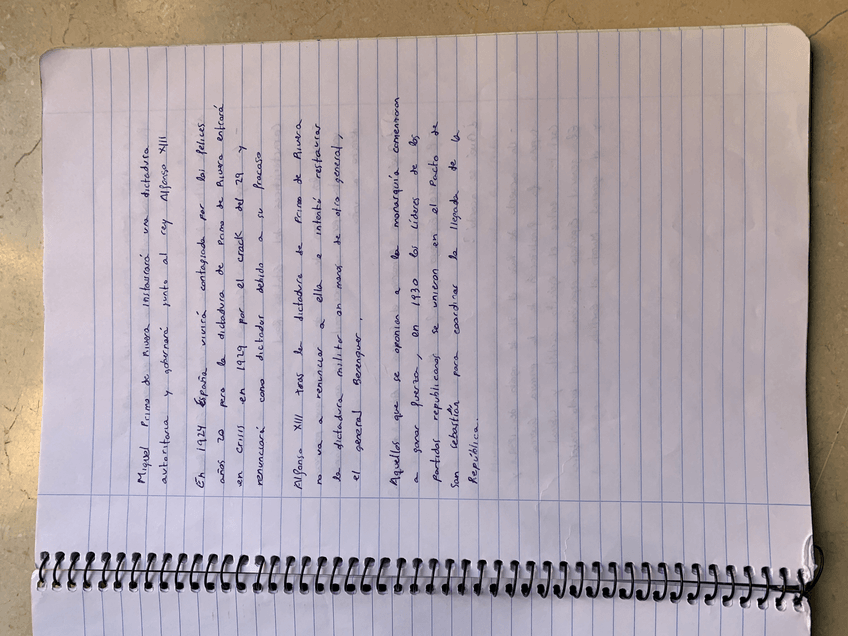 Miguel Primo de Rivera initaurará una dictadura
autoritaria y gobernará junto al rey Alfonso XIII
En 1924 España vivirá contagiada por los felices
años 20 pero la dictadura de Primo de Rivera entrará
en crisis en 1929 por el crack del 29 y
renunciará como dictador debido a su fracaso
Alfonso XIII tras la dictadura de Primo de Rivera
no va a renunciar a ella e intentó restaurar
la dictadura militar en manos de otro general,
el general Berenguer.
Aquellos que se oponían a la monarquía comenzaron
a ganar fuerza, en 1930 los líderes de los
partidos republicanos se unieron en el Pacto de
San Sebastián para coordinar la llegada de la
República.